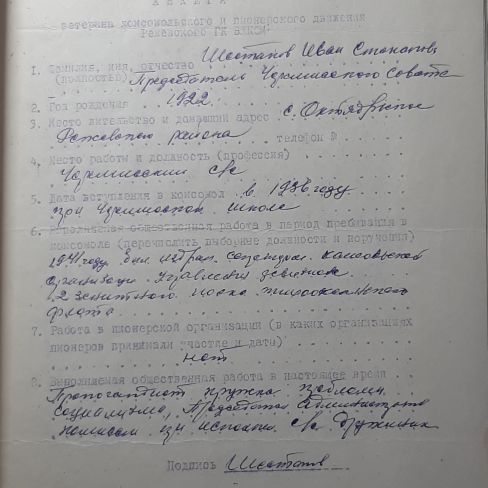 АНКЕТА
ветерана комсомольского и пионерского движения
Режевского ГК ВЛКСМ
1. Фамилия, имя, отчество Шестаков Иван Степанович
(полностью) Председатель Черемисского совета
2. Год рождения 1922
3. Место жительство и домашний адрес с. Октябрьское
Режевского района телефон №
4. Место работы и должность (профессия)
Черемисский с/с
5. Дата вступления в комсомол в 1936 году
при Черемисской школе
6. Выполняемая общественная работа в период пребывания в
комсомоле (перечислить выборные должности и поручения)
1941 году был избран
организации управления
2 зенитного полка тихоокеанского
флота
7. Работа в пионерской организации (в каких организациях
пионеров принимали участие и дата)
нет
8. Выполняемая общественная работа в настоящее время
Пропагандист кружка проблемы
социализма, Председатель административ
комиссии при исполком с/с дружинник
Подпись Шестаков